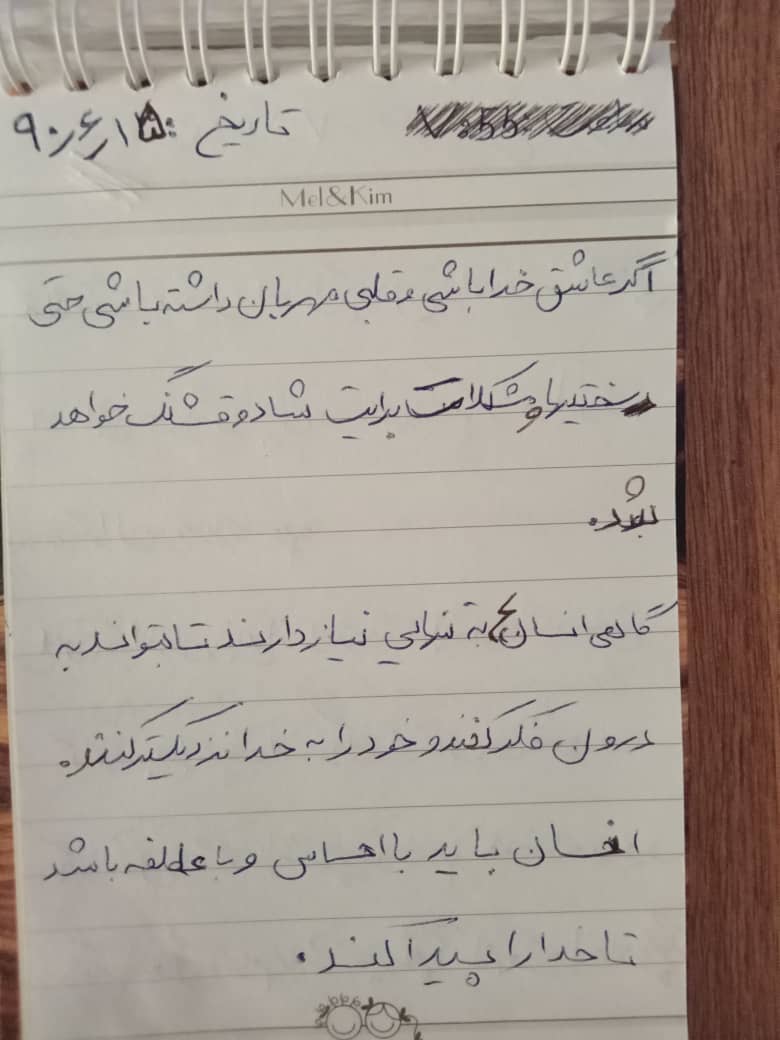 تاریخ: ۹۰/۶/۱۵
Mel&Kim
اگر عاشق خدا باشی و قلبی مهربان داشته باشی حتی
سختیها و مشکلات برایت شاد و قشنگ خواهد
شد.
گاهی انسان به تنهایی نیاز دارند تا بتواند به
درون فکر کنند و خود را به خدا نزدیکتر کنند.
انسان باید با احساس و با عاطفه باشد
تا خدا را پیدا کند.